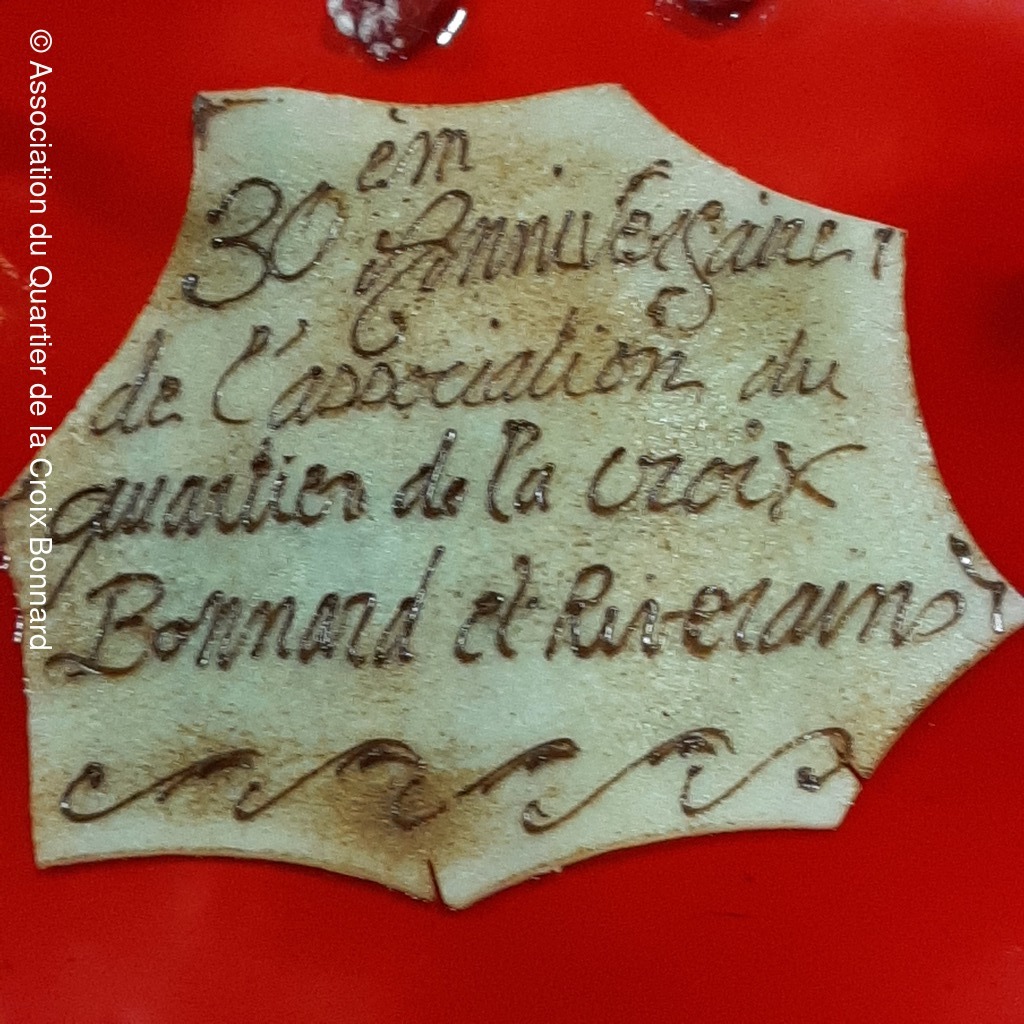 © Association du Quartier de la Croix Bonnard
30 èm Anniversaire
de l'association du
quartier de la croix
Bonnard et Riverains